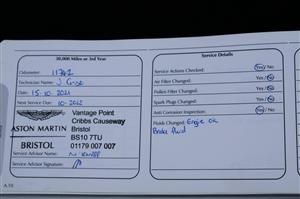 30,000 Miles or 3rd Year
Odometer: 11742
Technician Name: J
Date: 15-10-2021
Next Service Due: 10.2022
Vantage Point
Cribbs Causeway
Bristol
BS10 7TU
01179 007 007
ASTON MARTIN
BRISTOL
Service Advisor Name:
Service Advisor Signature:
A.10
Service Details
Service Actions Checked: Yes/No
Air Filter Changed: Yes/No
Pollen Filter Changed: Yes/No
Spark Plugs Changed: Yes/No
Anti Corrosion Inspection: Yes/No
Fluids Changed: Engine Oil
Brake fluid